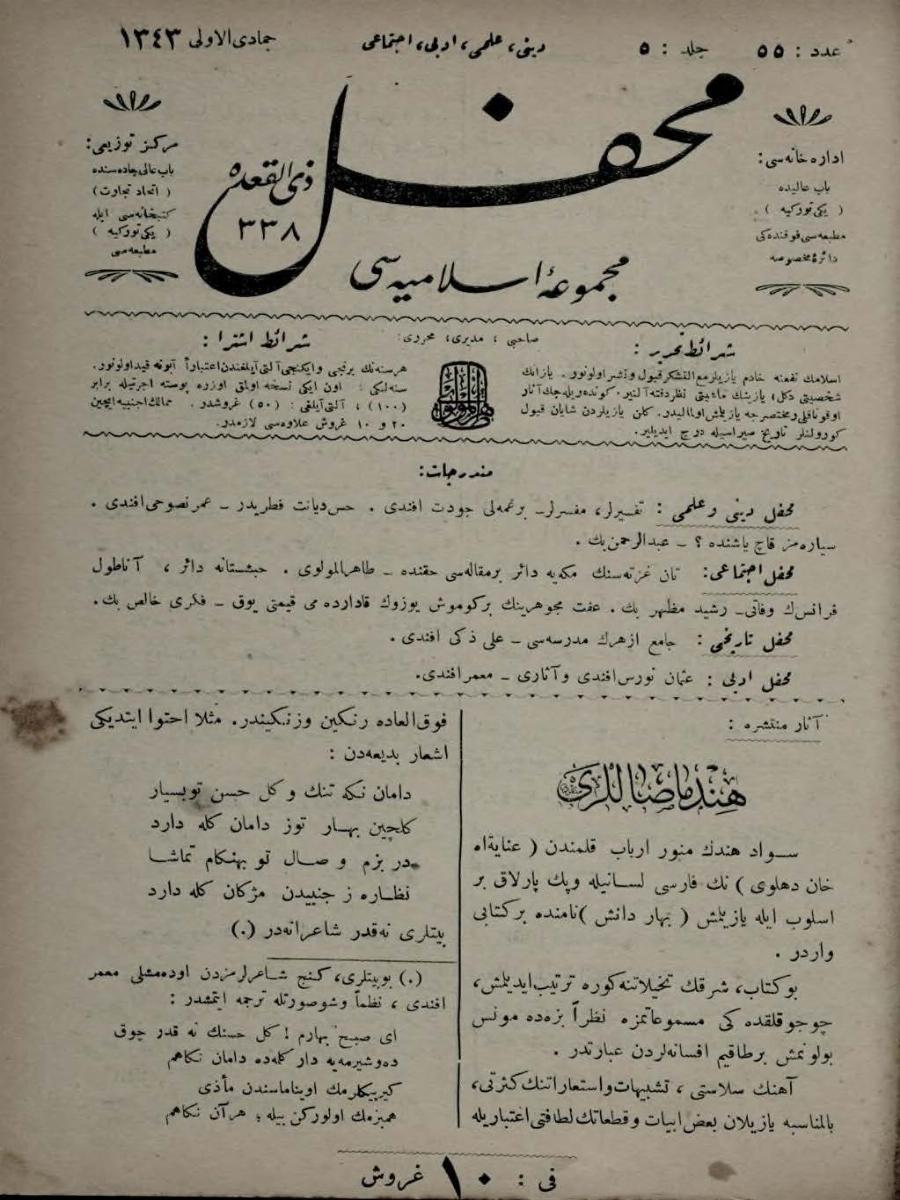 عدد : ٥٥
جلد : ٥
دینی، علمی، ادبی، اجتماعی
جمادی الاولی ١٣٤٣
محفل
ذی القعده
٣٣٨
مجموعهٔ اسلامیه سی
اداره خانه سی :
باب عالیده
( یکی تورکیه )
مطبعه سی فوقنده کی
دائرهٔ مخصوصه
مرکز توزیعی :
باب عالی جاده سنده
( اتحاد تجارت )
کتبخانه سی ایله
( یکی تورکیه )
مطبعه سی
شرائط تحریر :
اسلامك نفعنه خادم یازیلر مع التشکر قبول و نشر اولونور . یازانك
شخصیتی دکل، یازینك ماهیتی نظر دقته آلنیر. کونده ریله جك آثار
اوقوناقلی و مختصرجه یازیلمش اولمالیدر. کلن یازیلردن شایان قبول
کورولنلر تاریخ صیراسیله درج ایدیلیر.
صاحبی ، مدیری، محرری:
شرائط اشترا :
هر سنه نك برنجی و ایکنجی آلتی آیلغندن اعتباراً آبونه قید اولونور.
سنه لکی : اون ایکی نسخه اولمق اوزره پوسته اجرتیله برابر
(١٠٠) ، آلتی آیلقی : (٥٠) غروشدر . ممالك اجنبیه ایچین
٢٠ و ١٠ غروش علاوه سی لازمدر.
مندرجات:
محفل دینی و علمی : تفسیرلر، مفسرلر ـ برغمه لی جودت افندی . حس دیانت فطریدر ـ عمر نصوحی افندی .
سیاره مز قاچ یاشنده ؟ ـ عبدالرحمن بك .
محفل اجتماعی: تان غزته سنك مکه یه دائر بر مقاله سی حقنده ـ طاهر المولوی . حبشستانه دائر ، آناطول
فرانس ك وفاتی ـ رشید مظهر بك . عفت مجوهرینك بر کوموش یوزوك قادارده می قیمتی یوق ـ فکری خالص بك .
محفل تاریخی : جامع ازهرك مدرسه سی ـ علی ذکی افندی .
محفل ادبی : عثمان نورس افندی و آثاری ـ معمر افندی .
آثار منتشره :
هند ماصاللری
سواد هندك منور ارباب قلمندن ( عنایة الله
خان دهلوی ) نك فارسی لسانیله و پك پارلاق بر
اسلوب ایله یازیلمش ( بهار دانش ) نامنده بر کتابی
واردر .
بو کتاب، شرقك تخیلاتنه کوره ترتیب ایدیلمش،
چوجوقلقده کی مسموعاتمزه نظراً بزه ده مونس
بولونمش بر طاقیم افسانه لردن عبارتدر .
آهنك سلاستی ، تشبیهات و استعاراتنك کثرتی،
بالمناسبه یازیلان بعض ابیات و قطعاتك لطافتی اعتباریله
فوق العاده رنکین و زنکیندر. مثلا احتوا ایتدیکی
اشعار بدیعه دن :
دامان نکه تنك و کل حسن تو بسیار
کلچین بهار توز دامان کله دارد
در بزم وصال تو بهنکام تماشا
نظاره ز جنبیدن مژکان کله دارد
بیتلری نه قدر شاعرانه در (.)
(.) بو بیتلری، کنج شاعرلرمزدن اوده مشلی معمر
افندی ، نظماً و شو صورتله ترجمه ایتمشدر :
ای صبح بهارم ! کل حسنك نه قدر چوق
ده وشیرمه یه دار کلمه ده دامان نکاهم
کیرپیکلرمك اویناماسندن متأذی
همبزمك اولورکن بیله ، هر آن نکاهم
فی : ١٠ غروش